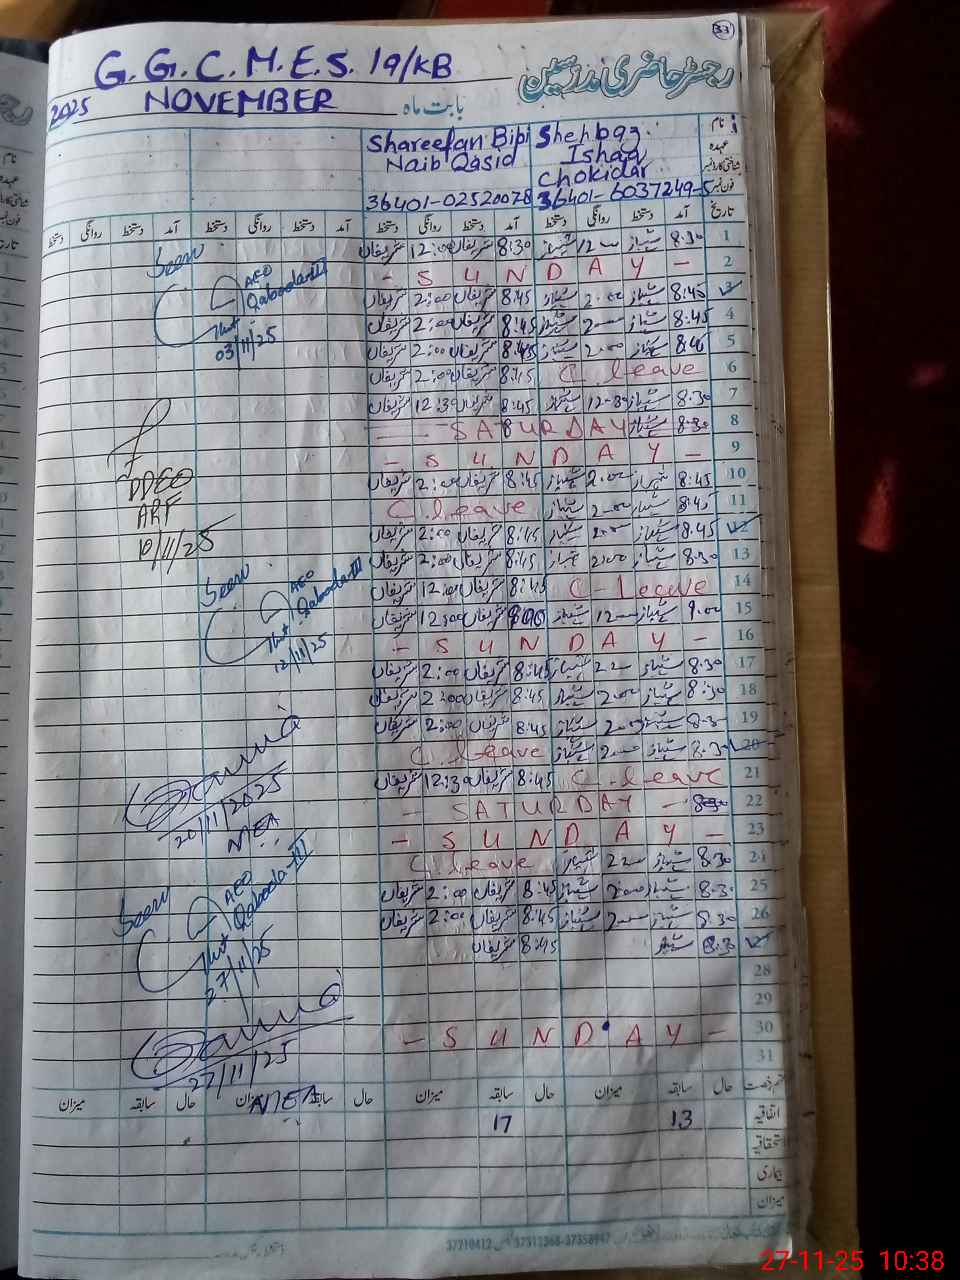 33
G.G.C.M.E.S. 19/KB رجسٹر حاضری مدرسین
2025 NOVEMBER بابت ماہ
Shareefan Bibi Shehbaz نام
Naib Qasid Ishaq عہدہ
Chokidar شناختی کارڈ نمبر
36401-02520078 36401-6037249-5 فون نمبر
دستخط روانگی دستخط آمد دستخط روانگی دستخط آمد دستخط روانگی دستخط آمد دستخط روانگی دستخط آمد تاریخ
شریفاں 12:00 شریفاں 8:30 شہباز 12 شہباز 8:30 1
- S U N D A Y - 2
شریفاں 2:00 شریفاں 8:45 شہباز 2:00 شہباز 8:45 3
شریفاں 2:00 شریفاں 8:45 شہباز 2 شہباز 8:45 4
شریفاں 2:00 شریفاں 8:45 شہباز 2:00 شہباز 5
شریفاں 2:00 شریفاں 8:45 C. leave 6
شریفاں 12:30 شریفاں 8:45 شہباز 12-30 شہباز 8:30 7
S A T U R D A Y شہباز 8:30 8
- S U N D A Y - 9
شریفاں 2:00 شریفاں 8:45 شہباز 2:00 شہباز 8:45 10
C. leave شہباز 2:00 شہباز 8:45 11
شریفاں 2:00 شریفاں 8:45 شہباز 2:00 شہباز 8:45 12
شریفاں 2:00 شریفاں 8:45 شہباز 2:00 شہباز 8:30 13
شریفاں 12:00 شریفاں 8:45 C- leave 14
شریفاں 12:00 شریفاں شہباز 12 شہباز 9:00 15
- S U N D A Y - 16
شریفاں 2:00 شریفاں 8:45 شہباز 2 شہباز 8:30 17
شریفاں 2:00 شریفاں 8:45 شہباز 2:00 شہباز 8:30 18
شریفاں 2:00 شریفاں 8:45 شہباز 2:00 شہباز 8:30 19
C. leave شہباز 2 شہباز 8:30 20
شریفاں 12:30 شریفاں 8:45 C. leave 21
- SATURDAY - 22
- S U N D A Y - 23
C. leave شہباز 2 شہباز 8:30 24
شریفاں 2:00 شریفاں 8:45 شہباز 2:00 شہباز 8:30 25
شریفاں 2:00 شریفاں 8:45 شہباز 2 شہباز 8:30 26
شریفاں 8:45 شہباز 8:30
28
29
- S U N D A Y - 30
31
Seen
AEO
Qaboola-III
03/11/25
DDEO
ARF
10/11/25
Seen
AEO
Qaboola-III
12/11/25
20/11/2025
MEA
Seen
AEO
Qaboola-III
27/11/25
27/11/25
MEA
میزان سابقہ حال میزان سابقہ حال میزان سابقہ حال میزان سابقہ حال قسم رخصت
17 13 اتفاقیہ
استحقاقیہ
بیماری
میزان
27-11-25 10:38